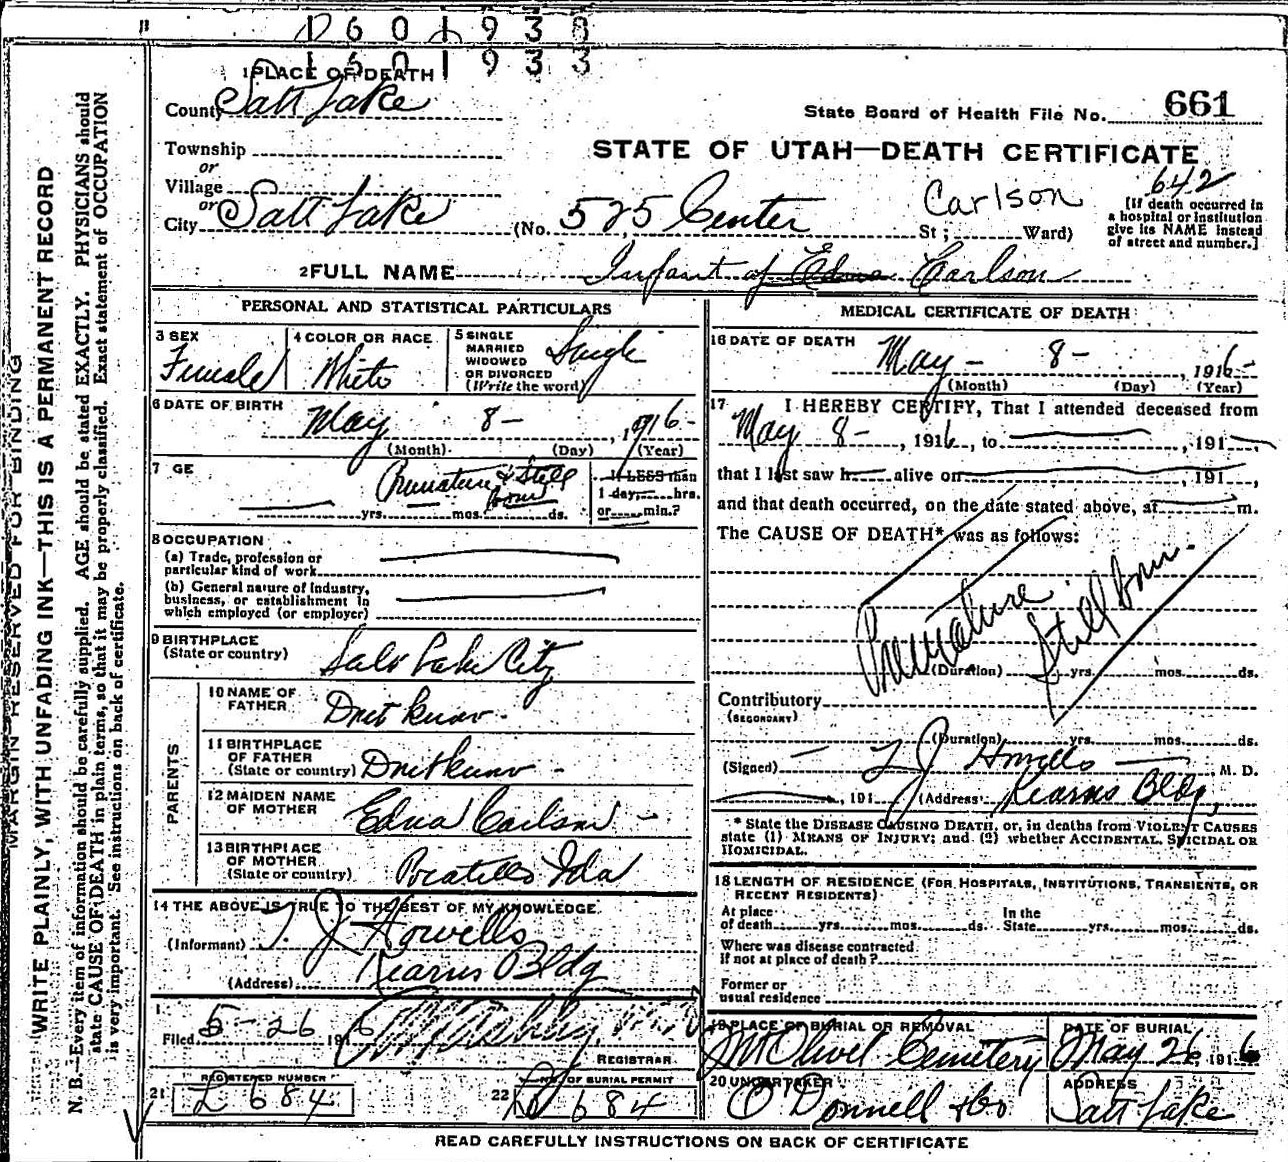 1601938
1601933
1 PLACE OF DEATH
County Salt Lake
State Board of Health File No. 661
Township
STATE OF UTAH—DEATH CERTIFICATE
or
Village
642
or
City Salt Lake (No. 525 Center St; Ward)
Carlson
[If death occurred in a hospital or institution give its NAME instead of street and number.]
2 FULL NAME Infant of Edna Carlson
PERSONAL AND STATISTICAL PARTICULARS
3 SEX
Female
4 COLOR OR RACE
White
5 SINGLE MARRIED WIDOWED OR DIVORCED (Write the word)
Single
6 DATE OF BIRTH
May 8- , 1916-
(Month) (Day) (Year)
7 GE
Premature & Still born
yrs. mos. ds.
If LESS than 1 day, hrs. or min.?
8 OCCUPATION
(a) Trade, profession or
particular kind of work
(b) General nature of industry,
business, or establishment in
which employed (or employer)
9 BIRTHPLACE
(State or country)
Salt Lake City
PARENTS
10 NAME OF FATHER
Dnt know -
11 BIRTHPLACE OF FATHER
(State or country) Dnt know -
12 MAIDEN NAME OF MOTHER
Edna Carlson -
13 BIRTHPLACE OF MOTHER
(State or country)
Pocatello Ida
14 THE ABOVE IS TRUE TO THE BEST OF MY KNOWLEDGE
(Informant) T. J. Howells
(Address) Kearns Bldg
Filed 5-26 191 6
REGISTRAR
21 REGISTERED NUMBER
D 684
22 NO. OF BURIAL PERMIT
D 684
MEDICAL CERTIFICATE OF DEATH
16 DATE OF DEATH
May - 8- , 1916-
(Month) (Day) (Year)
17 I HEREBY CERTIFY, That I attended deceased from
May 8- , 1916, to , 191
that I last saw h alive on , 191 ,
and that death occurred, on the date stated above, at m.
The CAUSE OF DEATH* was as follows:
Premature
Stillborn.
(Duration) yrs. mos. ds.
Contributory
(SECONDARY)
(Duration) yrs. mos. ds.
(Signed) T J Howells M. D.
, 191 (Address) Kearns Bldg,
* State the DISEASE CAUSING DEATH, or, in deaths from VIOLENT CAUSES
state (1) MEANS OF INJURY; and (2) whether ACCIDENTAL, SUICIDAL OR
HOMICIDAL.
18 LENGTH OF RESIDENCE (FOR HOSPITALS, INSTITUTIONS, TRANSIENTS, OR
RECENT RESIDENTS)
At place of death yrs. mos. ds. In the State yrs. mos. ds.
Where was disease contracted
if not at place of death?
Former or
usual residence
19 PLACE OF BURIAL OR REMOVAL
Mt Olivet Cemetery
DATE OF BURIAL
May 26, 1916
20 UNDERTAKER
O'Donnell & Co
ADDRESS
Salt Lake
READ CAREFULLY INSTRUCTIONS ON BACK OF CERTIFICATE
MARGIN RESERVED FOR BINDING
WRITE PLAINLY, WITH UNFADING INK—THIS IS A PERMANENT RECORD
N. B.—Every item of information should be carefully supplied. AGE should be stated EXACTLY. PHYSICIANS should
state CAUSE OF DEATH in plain terms, so that it may be properly classified. Exact statement of OCCUPATION
is very important. See instructions on back of certificate.